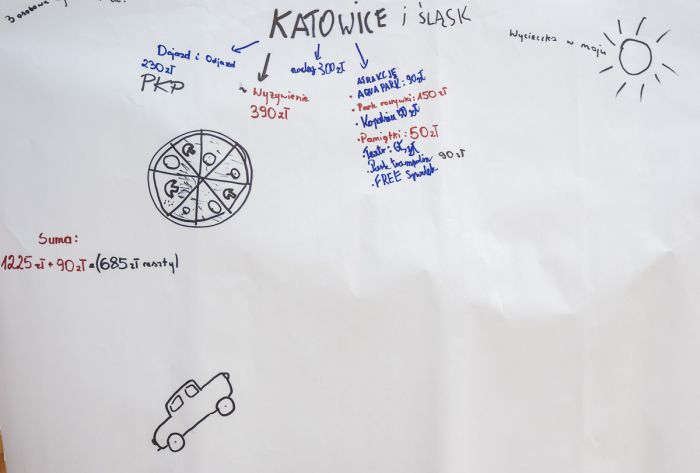 3 osobowa
KATOWICE i ŚLĄSK
Wycieczka w maju
Dojazd i Odjazd
230 zł
PKP
~ Wyżywienie
390 zł
nocleg 300 zł
ATRAKCJE
• AQUA PARK: 90 zł
• Park rozrywki: 150 zł
• Kopalnia
• Pamiątki: 50 zł
• Teatr:
• Park trampolin 90 zł
• FREE Spodek
Suma:
1225 zł + 90 zł = (685 zł reszty)